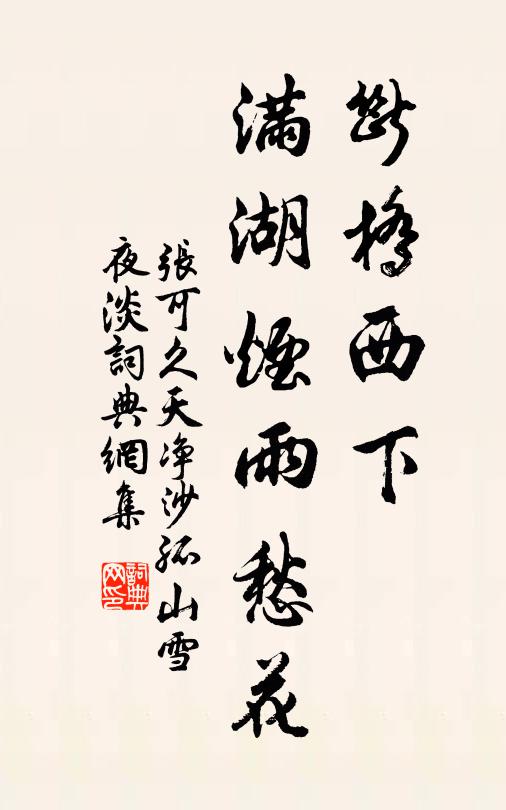 斷橋西下
滿湖煙雨愁花
張可久天净沙孤山雪
夜淡詞典網集
詞典
网印